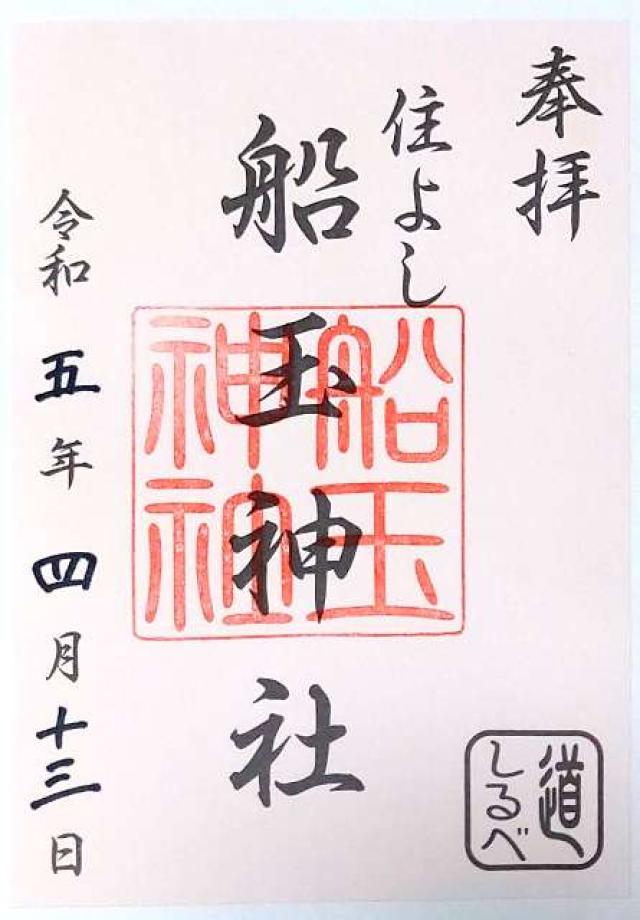 奉拝
住よし
船玉神社
船玉
神社
令和五年四月十三日
道
しるべ